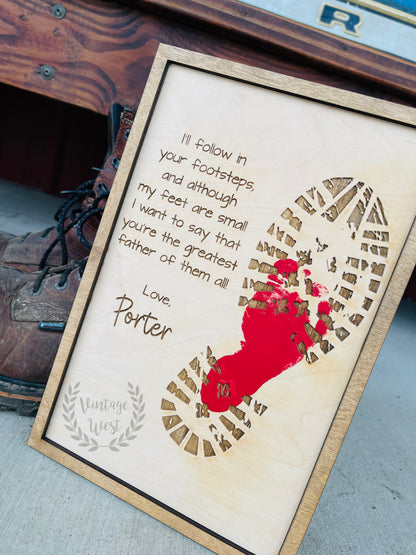 R
I'll follow in
your footsteps,
and although
my feet are small
I want to say that
you're the greatest
father of them all!
Love,
Porter
Vintage
West